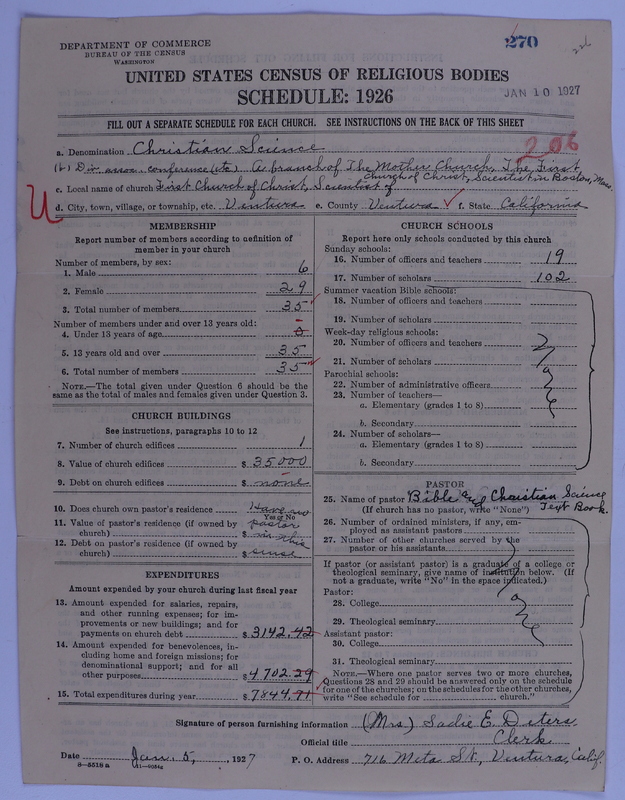 DEPARTMENT OF COMMERCE
BUREAU OF THE CENSUS
WASHINGTON
270
226
UNITED STATES CENSUS OF RELIGIOUS BODIES
SCHEDULE: 1926
JAN 10 1927
FILL OUT A SEPARATE SCHEDULE FOR EACH CHURCH. SEE INSTRUCTIONS ON THE BACK OF THIS SHEET
206
a. Denomination Christian Science
(b) Div. assn. conference (etc) A branch of The Mother Church, The First
Church of Christ, Scientist in Boston, Mass.
c. Local name of church First Church of Christ, Scientist of
U
d. City, town, village, or township, etc. Ventura e. County Ventura f. State California
MEMBERSHIP
Report number of members according to definition of
member in your church
Number of members, by sex:
1. Male 6
2. Female 29
3. Total number of members 35
Number of members under and over 13 years old:
4. Under 13 years of age 0
5. 13 years old and over 35
6. Total number of members 35
NOTE.—The total given under Question 6 should be the
same as the total of males and females given under Question 3.
CHURCH BUILDINGS
See instructions, paragraphs 10 to 12
7. Number of church edifices 1
8. Value of church edifices $ 35000
9. Debt on church edifices $ none
10. Does church own pastor's residence Have no
Yes or No
11. Value of pastor's residence (if owned by
church) $ pastor
12. Debt on pastor's residence (if owned by
church) $ in this
sense
EXPENDITURES
Amount expended by your church during last fiscal year
13. Amount expended for salaries, repairs,
and other running expenses; for im-
provements or new buildings; and for
payments on church debt $ 3142.42
14. Amount expended for benevolences, in-
cluding home and foreign missions; for
denominational support; and for all
other purposes $ 4702.29
15. Total expenditures during year $ 7844.71
CHURCH SCHOOLS
Report here only schools conducted by this church
Sunday schools:
16. Number of officers and teachers 19
17. Number of scholars 102
Summer vacation Bible schools:
18. Number of officers and teachers
19. Number of scholars
Week-day religious schools:
20. Number of officers and teachers
21. Number of scholars
Parochial schools:
22. Number of administrative officers
23. Number of teachers—
a. Elementary (grades 1 to 8)
b. Secondary
24. Number of scholars—
a. Elementary (grades 1 to 8)
b. Secondary
PASTOR
25. Name of pastor Bible and Christian Science
(If church has no pastor, write "None") Text Book.
26. Number of ordained ministers, if any, em-
ployed as assistant pastors
27. Number of other churches served by the
pastor or his assistants
If pastor (or assistant pastor) is a graduate of a college or
theological seminary, give name of institution below. (If
not a graduate, write "No" in the space indicated.)
Pastor:
28. College
29. Theological seminary
Assistant pastor:
30. College
31. Theological seminary
NOTE.—Where one pastor serves two or more churches,
Questions 28 and 29 should be answered only on the schedule
for one of the churches; on the schedules for the other churches,
write "See schedule for church."
Signature of person furnishing information (Mrs) Sadie E. Diters
Official title Clerk
Date Jan. 5, 1927 P. O. Address 716 Meta St., Ventura, Calif.
8—5518 a